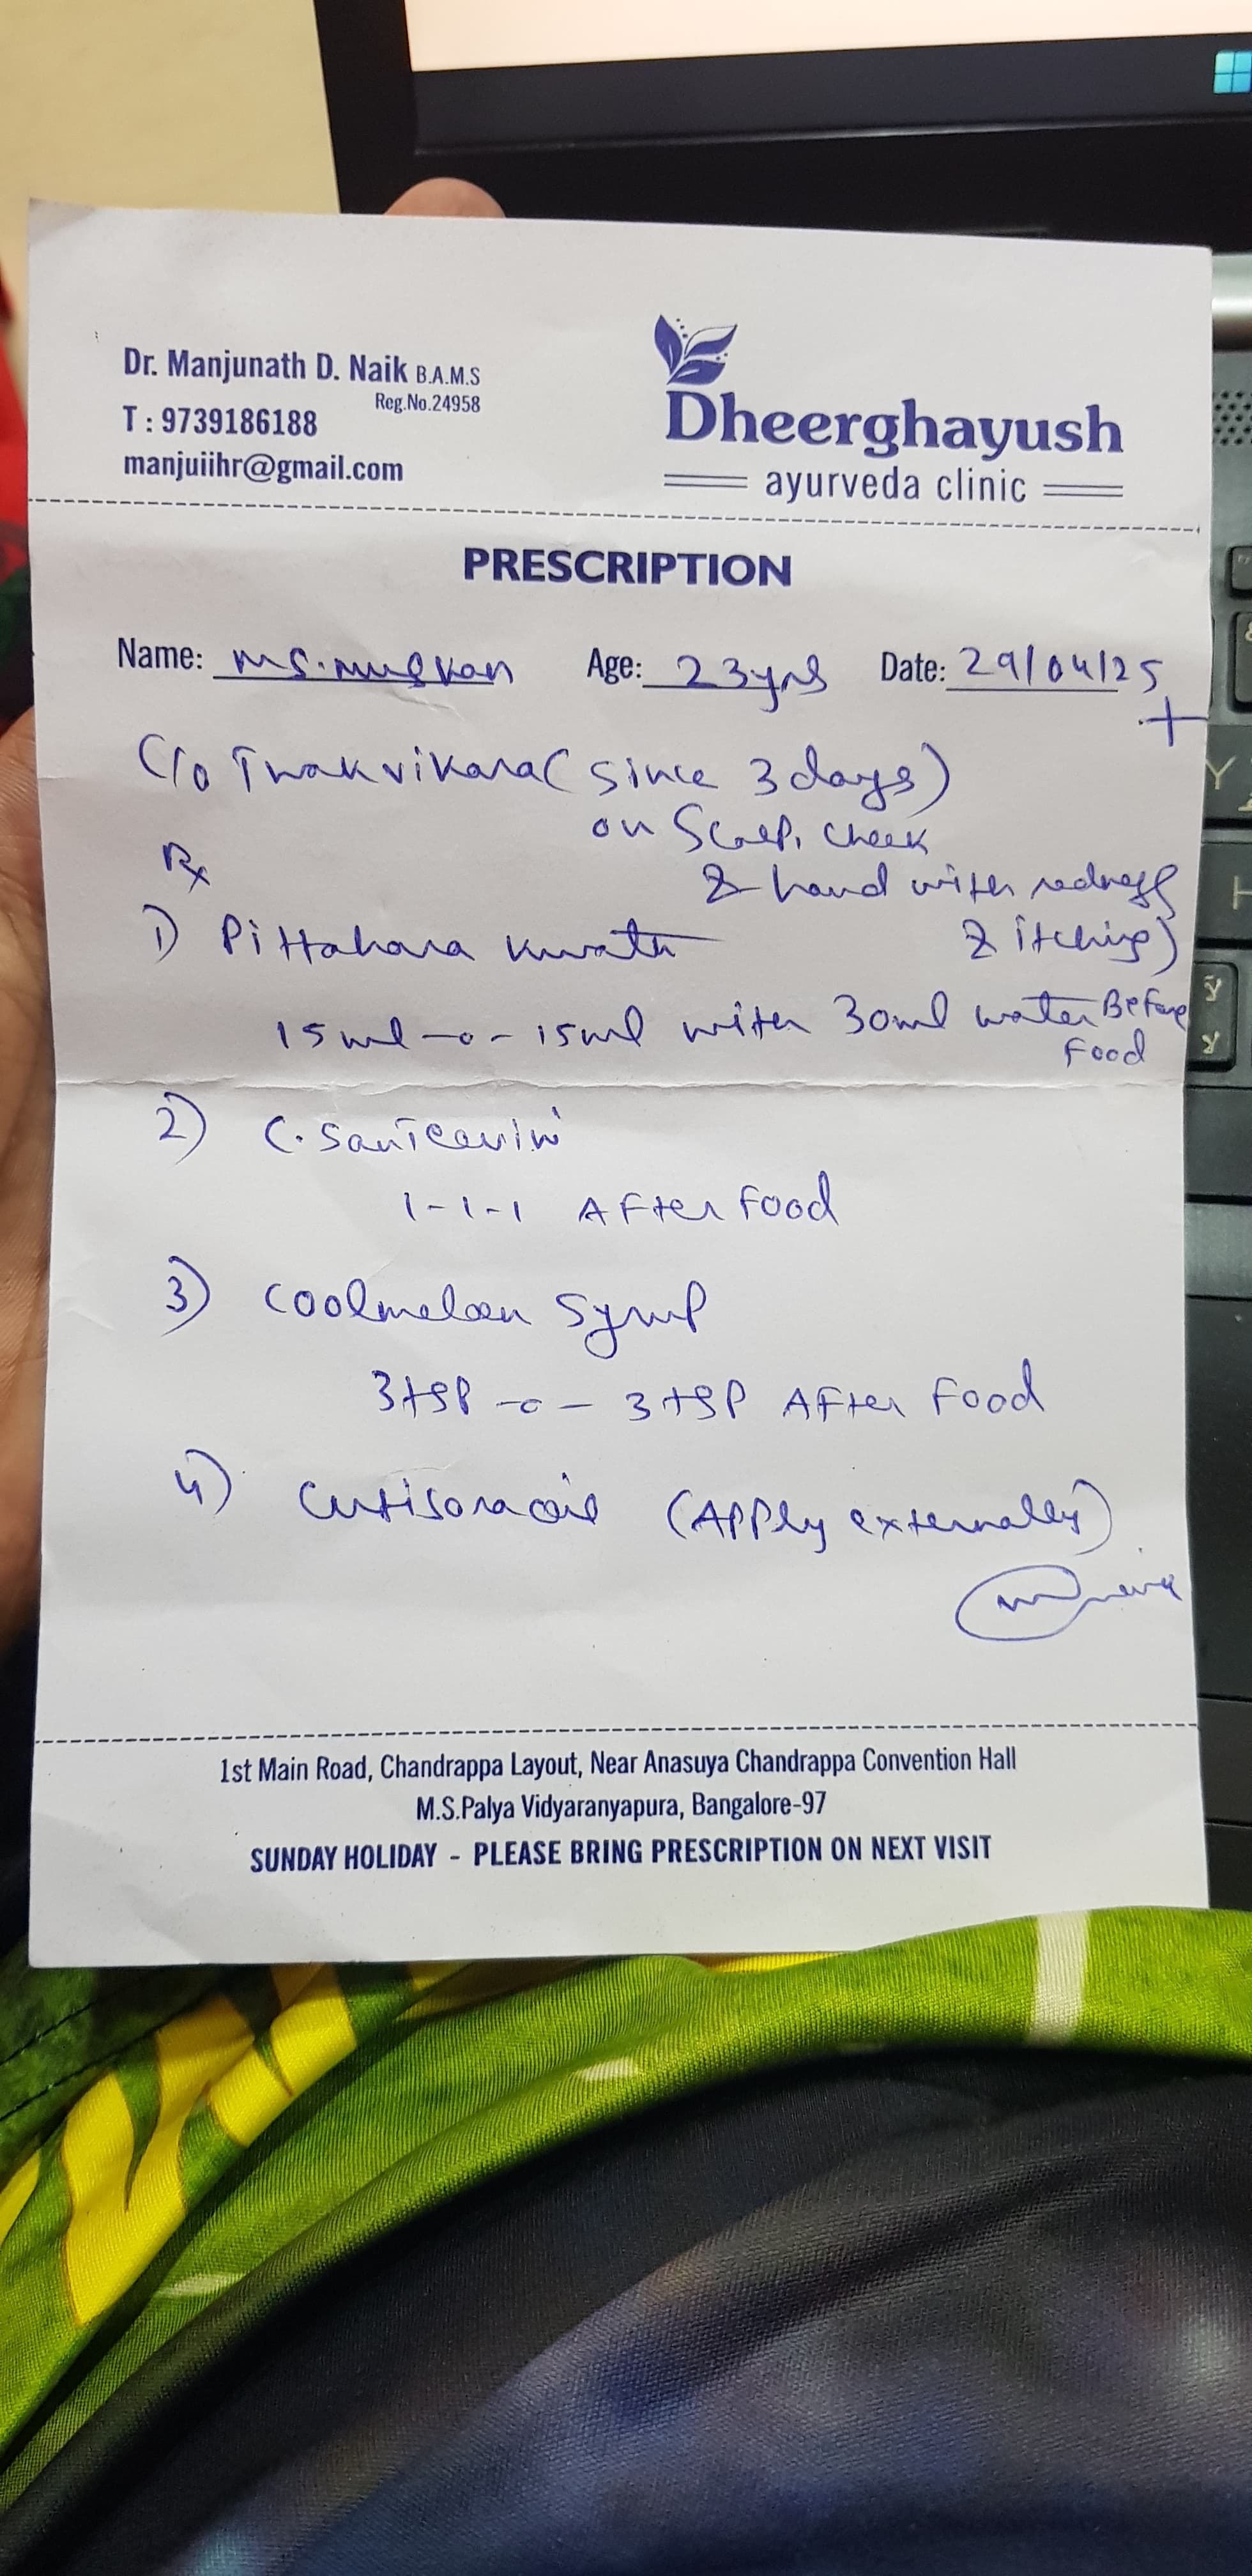 Dr. Manjunath D. Naik B.A.M.S
Reg.No.24958
T : 9739186188
manjuiihr@gmail.com
Dheerghayush
ayurveda clinic
PRESCRIPTION
Name: Ms. Muskan Age: 23yrs Date: 29/04/25
C/o Twakvikara (since 3 days)
on Scalp, cheek
& hand with redness
& itching)
Rx
1) Pittahara Kwath
15ml -o- 15ml with 30ml water Before
Food
2) C.
1-1-1 After food
3) Coolmelon Syrup
3tsp -o- 3tsp After Food
4) Cutisora oil (Apply externally)
1st Main Road, Chandrappa Layout, Near Anasuya Chandrappa Convention Hall
M.S.Palya Vidyaranyapura, Bangalore-97
SUNDAY HOLIDAY - PLEASE BRING PRESCRIPTION ON NEXT VISIT